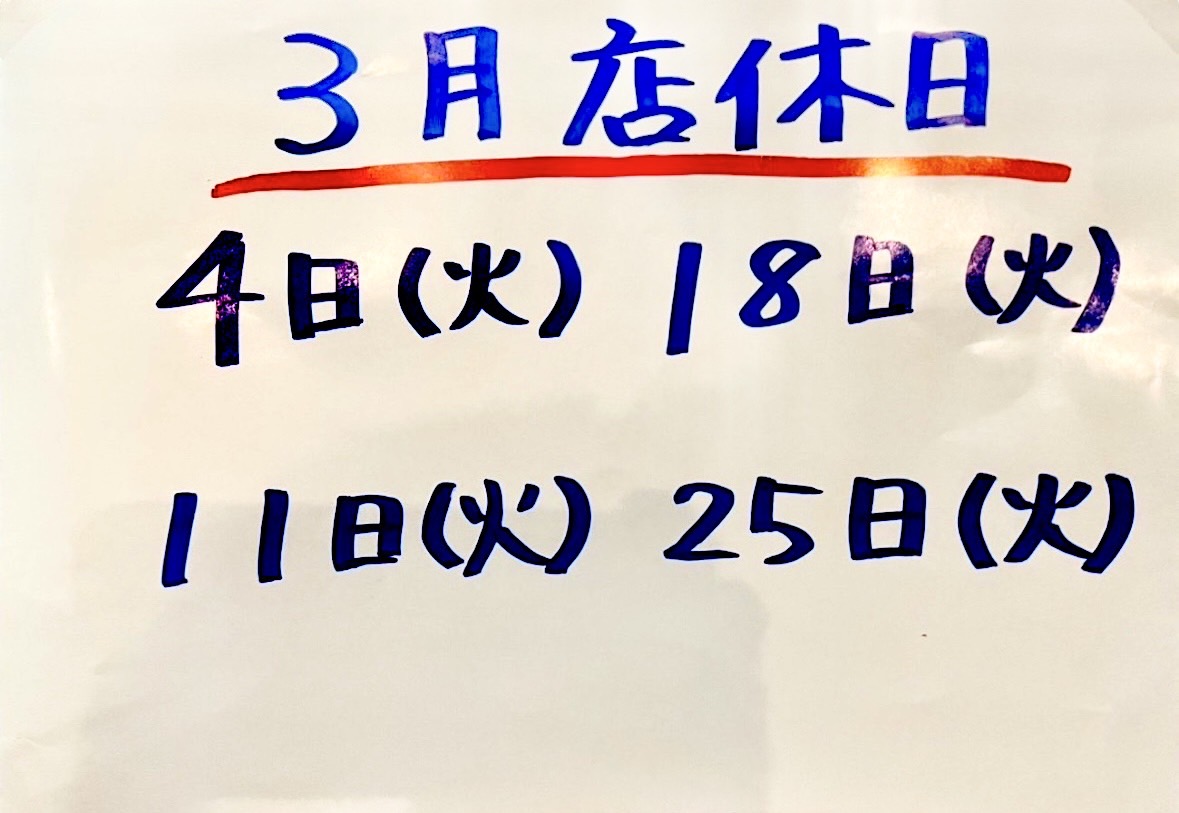 3月店休日
4日(火) 18日(火)
11日(火) 25日(火)